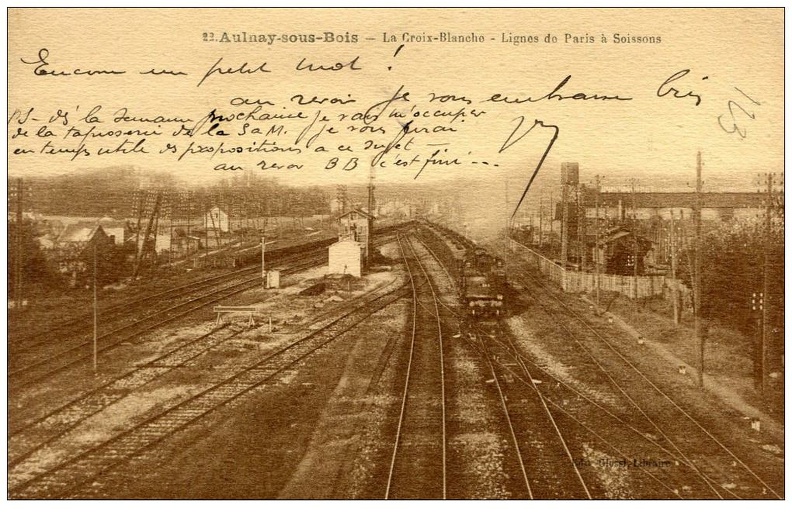 22. Aulnay-sous-Bois – La Croix-Blanche - Lignes de Paris à Soissons
Encore un petit mot !
au revoir je vous embrasse bien
PS - dès la semaine prochaine je vais m'occuper
de la tapisserie de la SaM. je vous ferai
en temps utile des propositions a ce sujet -
au revoir BB c'est fini ---
123